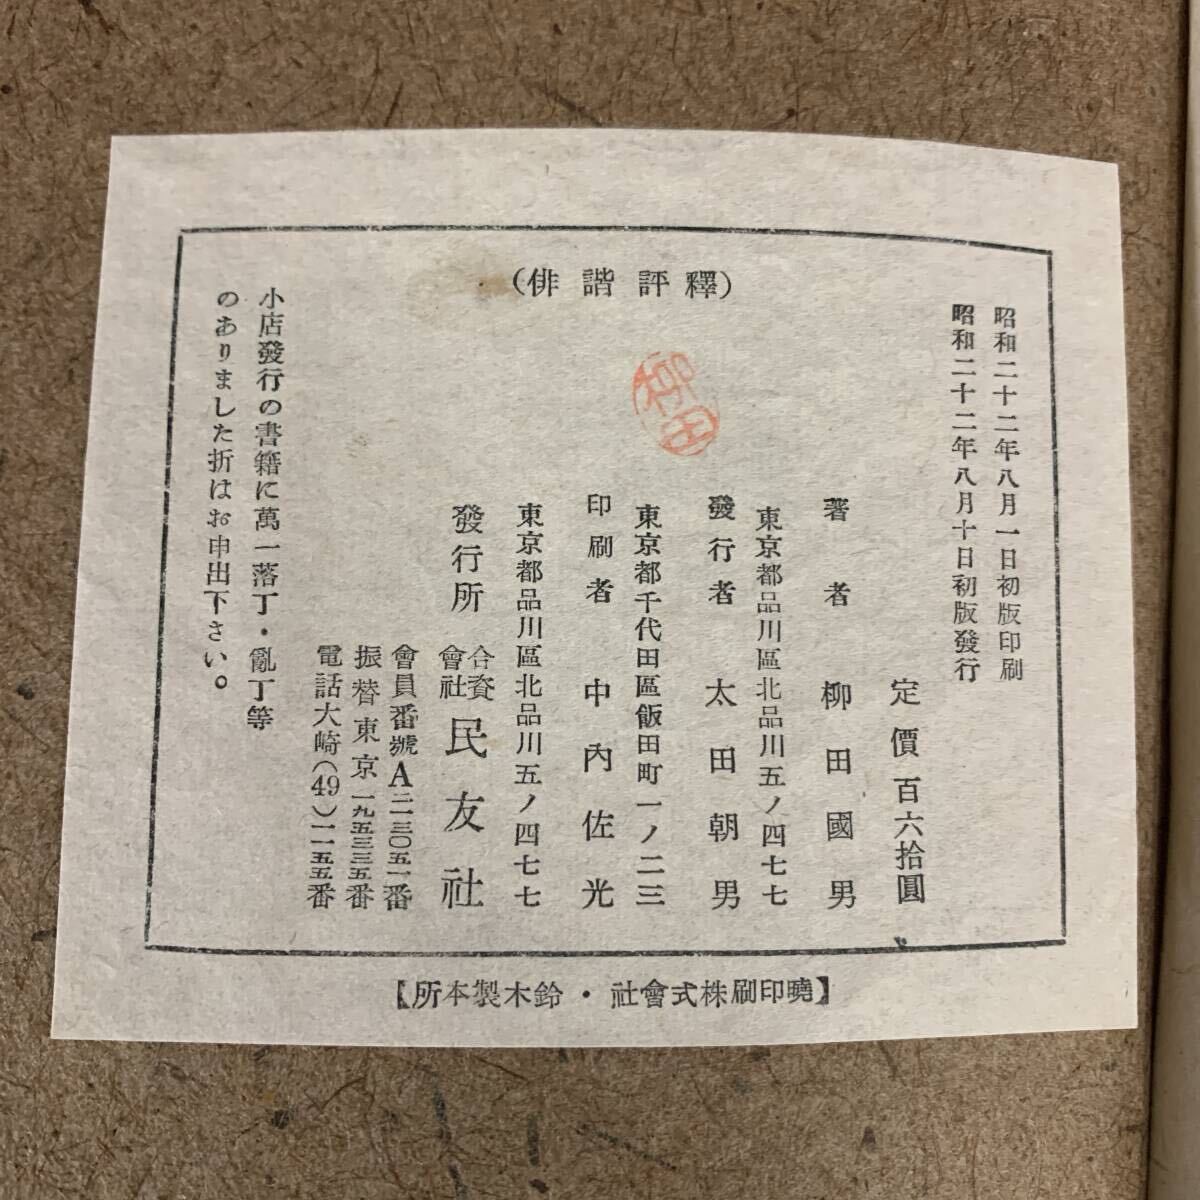 (俳諧評釋)
昭和二十二年八月一日初版印刷
昭和二十二年八月十日初版發行
定價百六拾圓
著者 柳田國男
東京都品川區北品川五ノ四七七
發行者 太田朝男
東京都千代田區飯田町一ノ二三
印刷者 中內佐光
東京都品川區北品川五ノ四七七
發行所 合資會社 民友社
會員番號A二一三〇五一番
振替東京一九五三三五番
電話大崎(49)二一五五番
小店發行の書籍に萬一落丁・亂丁等
のありました折はお申出下さい。
【所本製木鈴・社會式株刷印曉】